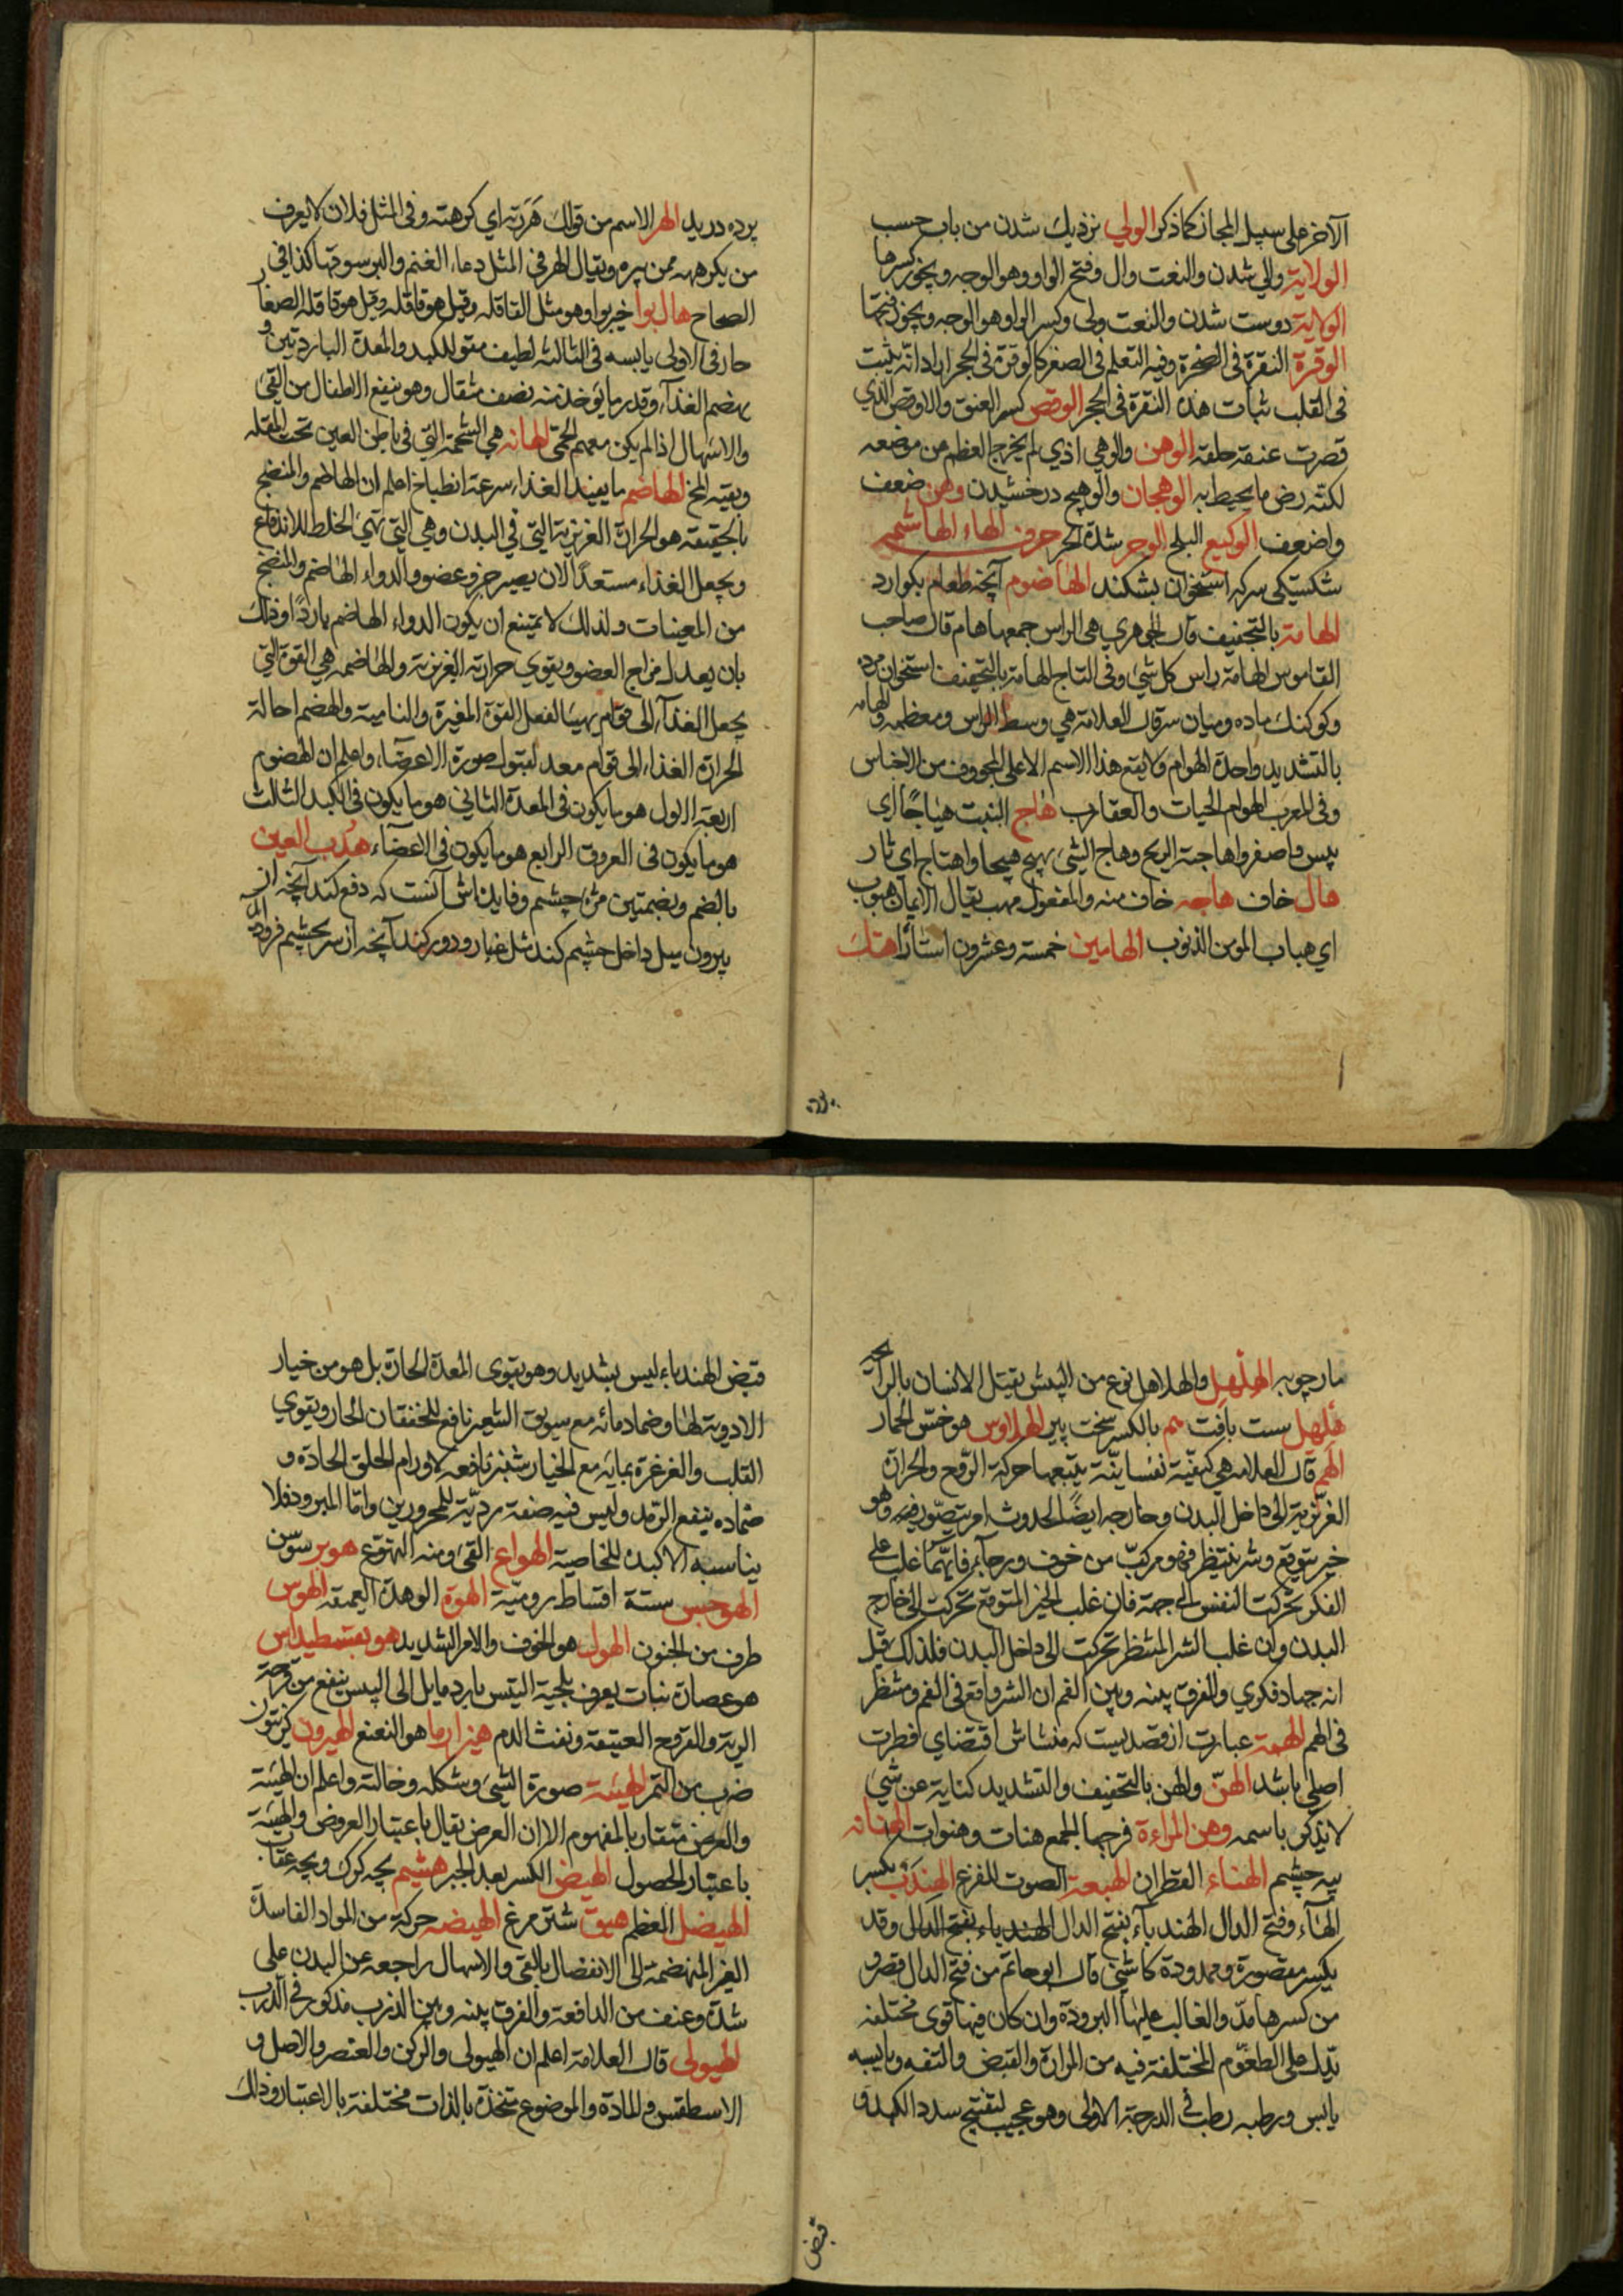 الآخر على سبيل المجاز كما ذكر الولي نزديك شدن من باب حسب
الولاية والي شدن والنعت وال وفتح الواو وهو الوجه ويجوز كسرها
الولاية دوست شدن والنعت ولي وكسر الواو هو الوجه ويجوز فتحها
الوقرة النقرة في الصخرة وفيه التعلم في الصغر كالوقرة في الحجر اراد انه يثبت
في القلب ثبات هذه النقرة في الحجر الوقص كسر العنق والاوقص الذي
قصرت عنقه خلقة الوهن والوهي اذي لم يخرج العظم من موضعه
لكنه رض ما يحيط به الوهجان والوهيج درخشيدن وهن ضعف
واضعف الوكيع البلح الوحر شدة الحر حرف الهاء الهاشم
شكستيكى سر كه استخوان بشكند الهاضوم آنچه طعام بكوارد
الهامة بالتخفيف قال الجوهري هي الراس جمعها هام قال صاحب
القاموس الهامة راس كل شيء وفي التاج الهامة بالتخفيف استخوان مرده
وكوكنك ماده وميان سر قال العلامة هي وسط الراس ومعظمه والهامه
بالتشديد واحدة الهوام ولا يقع هذا الاسم الا على المخوف من الاخناس
وفي المغرب الهوام الحيات والعقارب هاج النبت هياجا اي
يبس واصفر واهاجته الريح وهاج الشيء يهيج هيجا واهتاج اي ثار
هال خاف هاجه خاف منه والمفعول مهب يقال الايمان هبوب
اي هباب المومن الذنوب الهامين خمسة وعشرون استارا هتك
پرده دريد الهر الاسم من قولك هررته اي كرهته وفي المثل فلان لا يعرف
من يكرهه ممن يبره ويقال الهر في المثل دعاء الغنم والبر سوقها كذا في
الصحاح هال بوا خير بوا وهو مثل القاقله وقيل هو قاقله وقيل هو قاقله الصغار
حار في الاولى يابسه في الثالثه لطيف مقو للكبد والمعدة الباردتين و
يهضم الغذاء وقدر ما يؤخذ منه نصف مثقال وهو ينفع الاطفال من القيء
والاسهال اذا لم يكن معهم الحمى الهانه هي الشحمة التي في باطن العين تحت المقله
وبقيه المخ الهاضم ما يفيد الغذاء سرعة انطباخ اعلم ان الهاضم والمنضج
بالحقيقه هو الحرارة الغريزية التي في البدن وهي التي تهيئ الخلط للاندفاع
ويجعل الغذاء مستعدا لان يصير جزو عضو والدواء الهاضم والمنضج
من المعينات ولذلك لا يمتنع ان يكون الدواء الهاضم باردا وذلك
بان يعدل مزاج العضو ويقوي حرارته الغريزية والهاضمه هي القوة التي
يجعل الغذاء الى قوام يهيئا لفعل القوة المغيرة والنامية والهضم احالة
الحرارة الغذاء الى قوام معد لقبول صورة الاعضاء واعلم ان الهضوم
اربعة الاول هو ما يكون في المعدة الثاني هو ما يكون في الكبد الثالث
هو ما يكون في العروق الرابع هو ما يكون في الاعضاء هدب العين
بالضم وبضمتين مژه چشم وفايده اش آنست كه دفع كند آنچه از
بيرون ميل داخل چشم كند مثل غبار ودور كند آنچه از سر بچشم فرود
مارچوبه الهلهل والهلاهل نوع من البيش يقتل الانسان بالرائحة
هلهل سست بافت هم بالكسر سخت پير الهلاوس هو خس الحمار
الهم قال العلامه هي كيفية نفسانية يتبعها حركة الروح والحرارة
الغريزية الى داخل البدن وخارجه ايضا لحدوث امر يتصور فيه وهو
خير يتوقع وشر ينتظر فهو مركب من خوف ورجاء فايهما غلب على
الفكر تحركت النفس الى جهة فان غلب الخير المتوقع تحركت الى خارج
البدن وان غلب الشر المنتظر تحركت الى داخل البدن فلذلك قيل
انه جهاد فكري والفرق بينه وبين الغم ان الشر واقع في الغم ومنتظر
في الهم الهمة عبارت از قصديست كه منشاش اقتضاى فطرت
اصلى باشد الهن والهن بالتخفيف والتشديد كناية عن شيء
لا يذكر باسمه وهن المراءة فرجها الجمع هنات وهنوات الهنانه
پيه چشم الهناء القطران الهيعة الصوت للفزع الهندب بكسر
الهاء وفتح الدال الهندباء بفتح الدال الهندباء بفتح الدال وقد
يكسر مقصورة وممدودة كاشني قال ابو حاتم من فتح الدال قصر و
من كسرها مد والغالب عليها البرودة وان كان فيها قوى مختلفه
تدل على الطعوم المختلفة فيه من المرارة والقبض والتفه ويابسه
يابس ورطبه رطب في الدرجة الاولى وهو عجيب لتفتيح سدد الكبد و
قبض
قبض الهندباء ليس بشديد وهو يقوى المعدة الحارة بل هو من خيار
الادوية لها وضماد مائه مع سويق الشعير نافع للخفقان الحار ويقوي
القلب والغرغرة بمائه مع الخيار شنبر نافعه لاورام الحلق الحادة و
ضماده ينفع الرمد وليس فيه صفة ردية للمحرورين واما المبرود فلا
يناسبه الا كبده للخاصية الهواع القيء ومنه التهوع هوبر سوسن
الهوجبس ستة اقساط رومية الهوة الوهدة العميقة الهوس
طرف من الجنون الهول هو الخوف والامر الشديد هو بقسطيداس
هو عصارة نبات يعرف بلحية التيس بارد مايل الى اليبس ينفع من قرحة
الرية والقروح العتيقه ونفث الدم هيزارما هو النعنع الهيرون
ضرب من التمر الهيئة صورة الشيء وشكله وحالته واعلم ان الهيئة
والعرض متقاربا المفهوم الا ان العرض يقال باعتبار العروض والهيئة
باعتبار الحصول الهيض الكسر بعد الجبر هيثم بچه كرك وبچه عقاب
الهيضل العظم هيق شتر مرغ الهيضه حركة من المواد الفاسدة
الغير المنهضمة الى الانفصال بالقيء والاسهال راجعه عن البدن على
شدة وعنف من الدافعة والفرق بينه وبين الذرب مذكور في الذرب
الهيولى قال العلامة اعلم ان الهيولى والركن والعنصر والاصل و
الاسطقس والمادة والموضوع متحدة بالذات مختلفة بالاعتبار وذلك